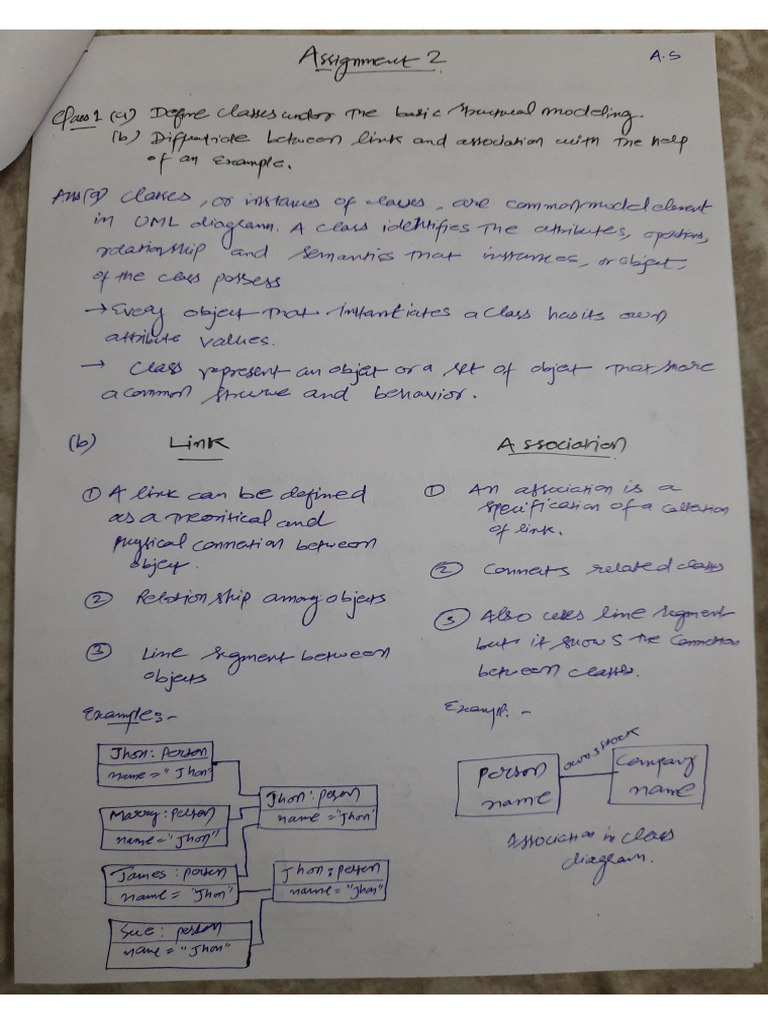 Assignment 2
A.S
Ques1 (a) Define Classes under the basic structural modeling.
(b) Diffrentiate between link and association with the help
of an Example.
Ans(a) Classes, or instances of classes, are common model element
in UML diagram. A class identifies the attributes, operations,
relationship and semantics that instances, or object,
of the class possess
→ Every object that instantiates a class has its own
attribute values.
→ Class represent an object or a set of object that share
a common structure and behavior.
(b) Link
① A link can be defined
as a theoritical and
physical connetion between
object.
② Relationship among objects
③ Line segment between
objects
Examples-
Jhon: person
name = "Jhon"
Marry: person
name = "Jhon"
James: person
name = "Jhon"
Sue: person
name = "Jhon"
Jhon: person
name = "Jhon"
Jhon: person
name = "Jhon"
Association
① An association is a
specification of a collection
of link.
② Connects related classes
③ Also uses line segment
but it shows the connection
between classes.
Example: -
person
name
owns stock
Company
name
Association in class
diagram.